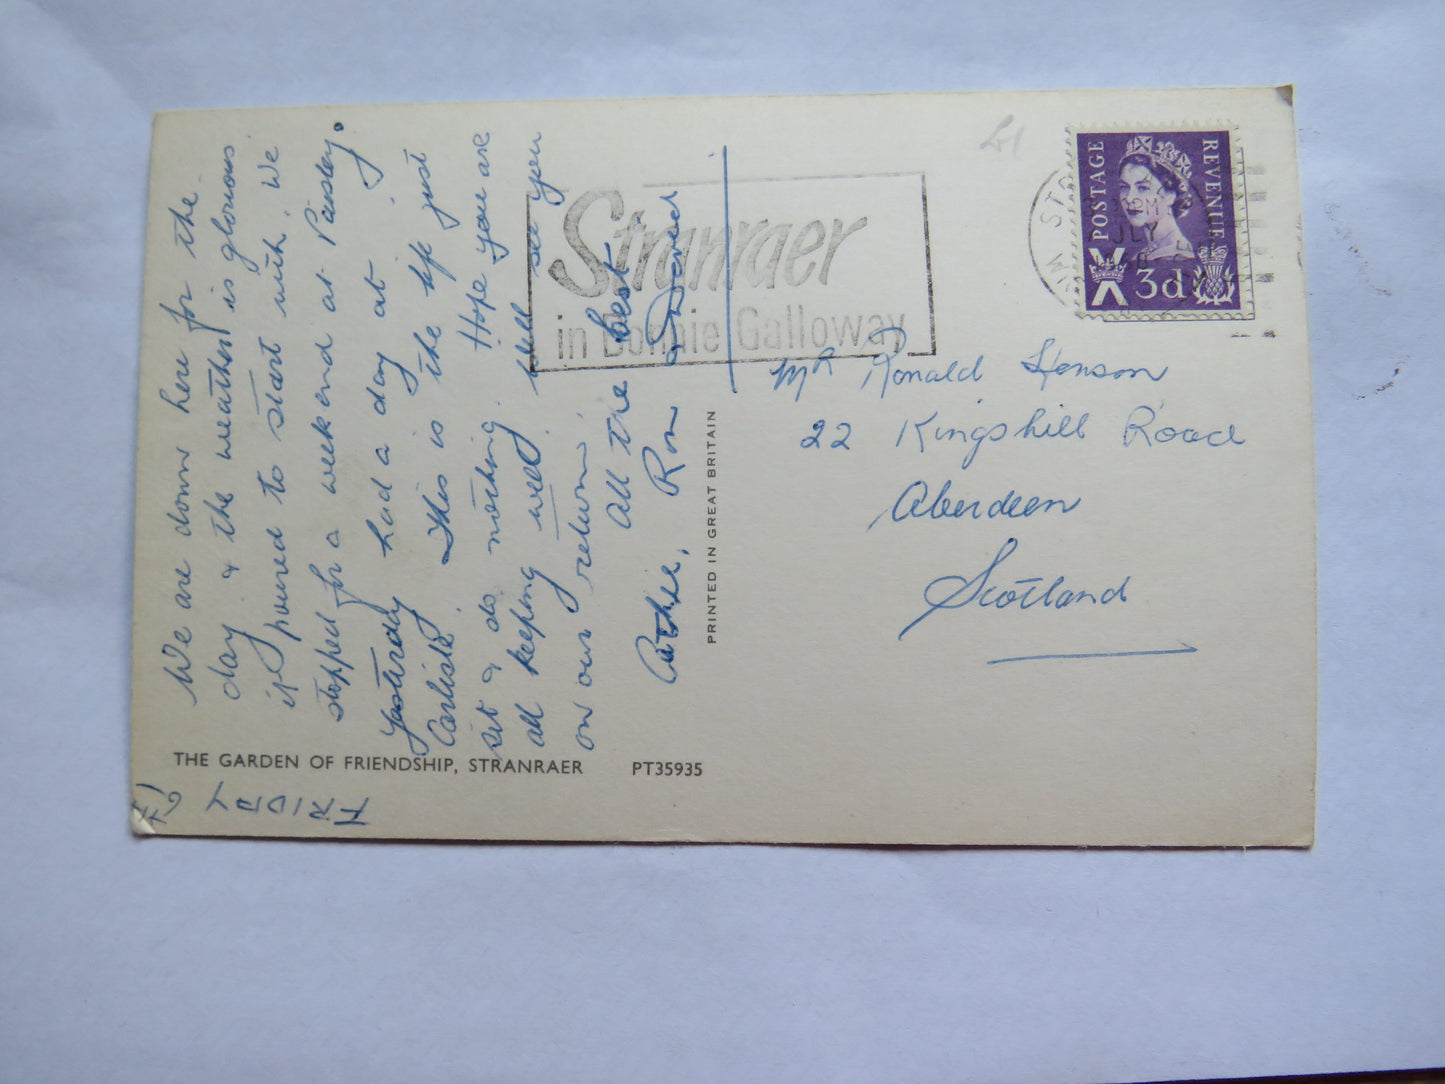 FRIDAY
We are down here for the
day & the weather is glorious
it poured to start with. We
stopped for a weekend at Paisley.
yesterday had a day at
Carlisle. This is the life just
sit & do nothing. Hope you are
all keeping well. Will see you
on our return.
All the best
Cathie, Ron & Doreen
THE GARDEN OF FRIENDSHIP, STRANRAER PT35935
PRINTED IN GREAT BRITAIN
Stranraer
in Bonnie Galloway
POSTAGE
REVENUE
3d
PM
JLY
Mr Ronald Henson
22 Kingshill Road
Aberdeen
Scotland
£1